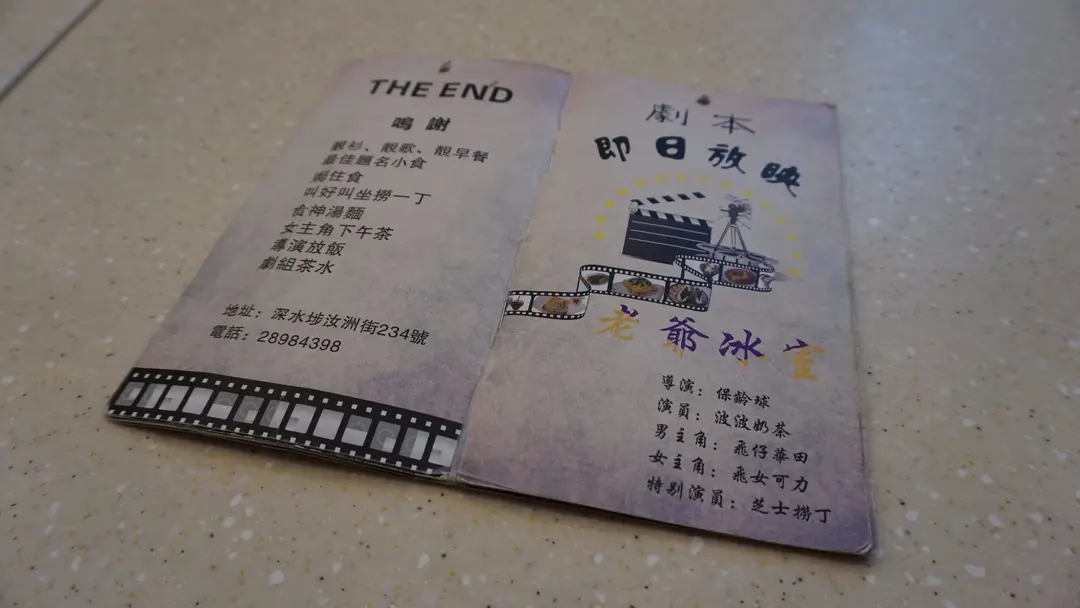 THE END
鳴謝
靚衫、靚歌、靚早餐
最佳題名小食
獨住食
叫好叫坐撈一丁
食神湯麵
女主角下午茶
導演放飯
劇組茶水
地址：深水埗汝洲街234號
電話：28984398
劇本
即日放映
老爺冰室
導演：保齡球
演員：波波奶茶
男主角：飛仔華田
女主角：飛女可力
特別演員：芝士撈丁